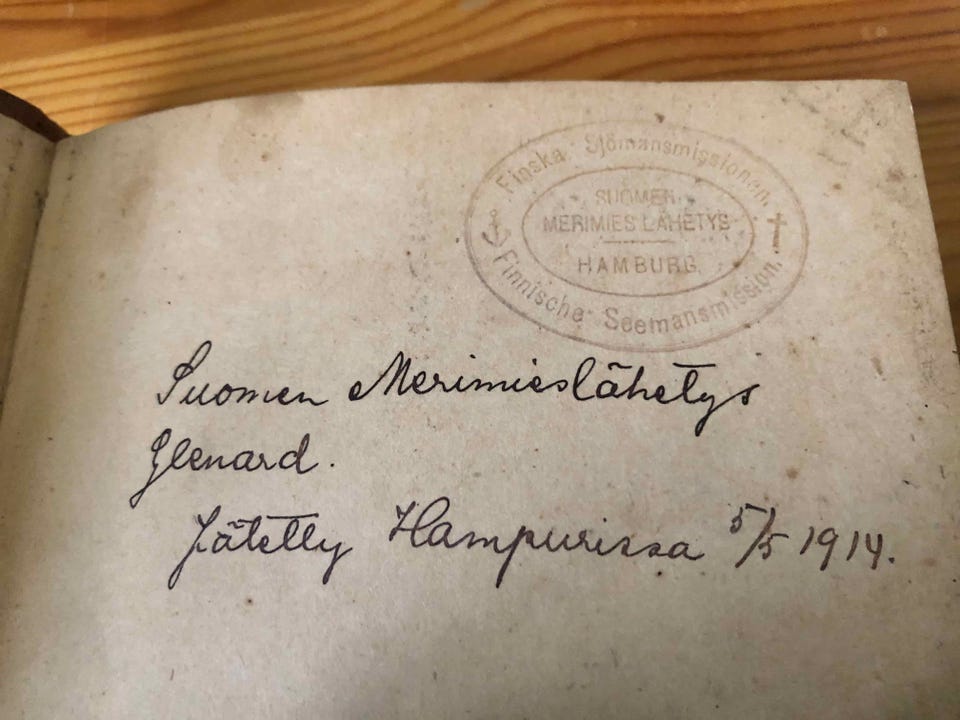 Finska Sjömansmissionen.
SUOMEN
MERIMIES LÄHETYS
HAMBURG
Finnische Seemansmission.
Suomen Merimieslähetys
Glenard.
Jätetty Hampurissa 5/5 1914.